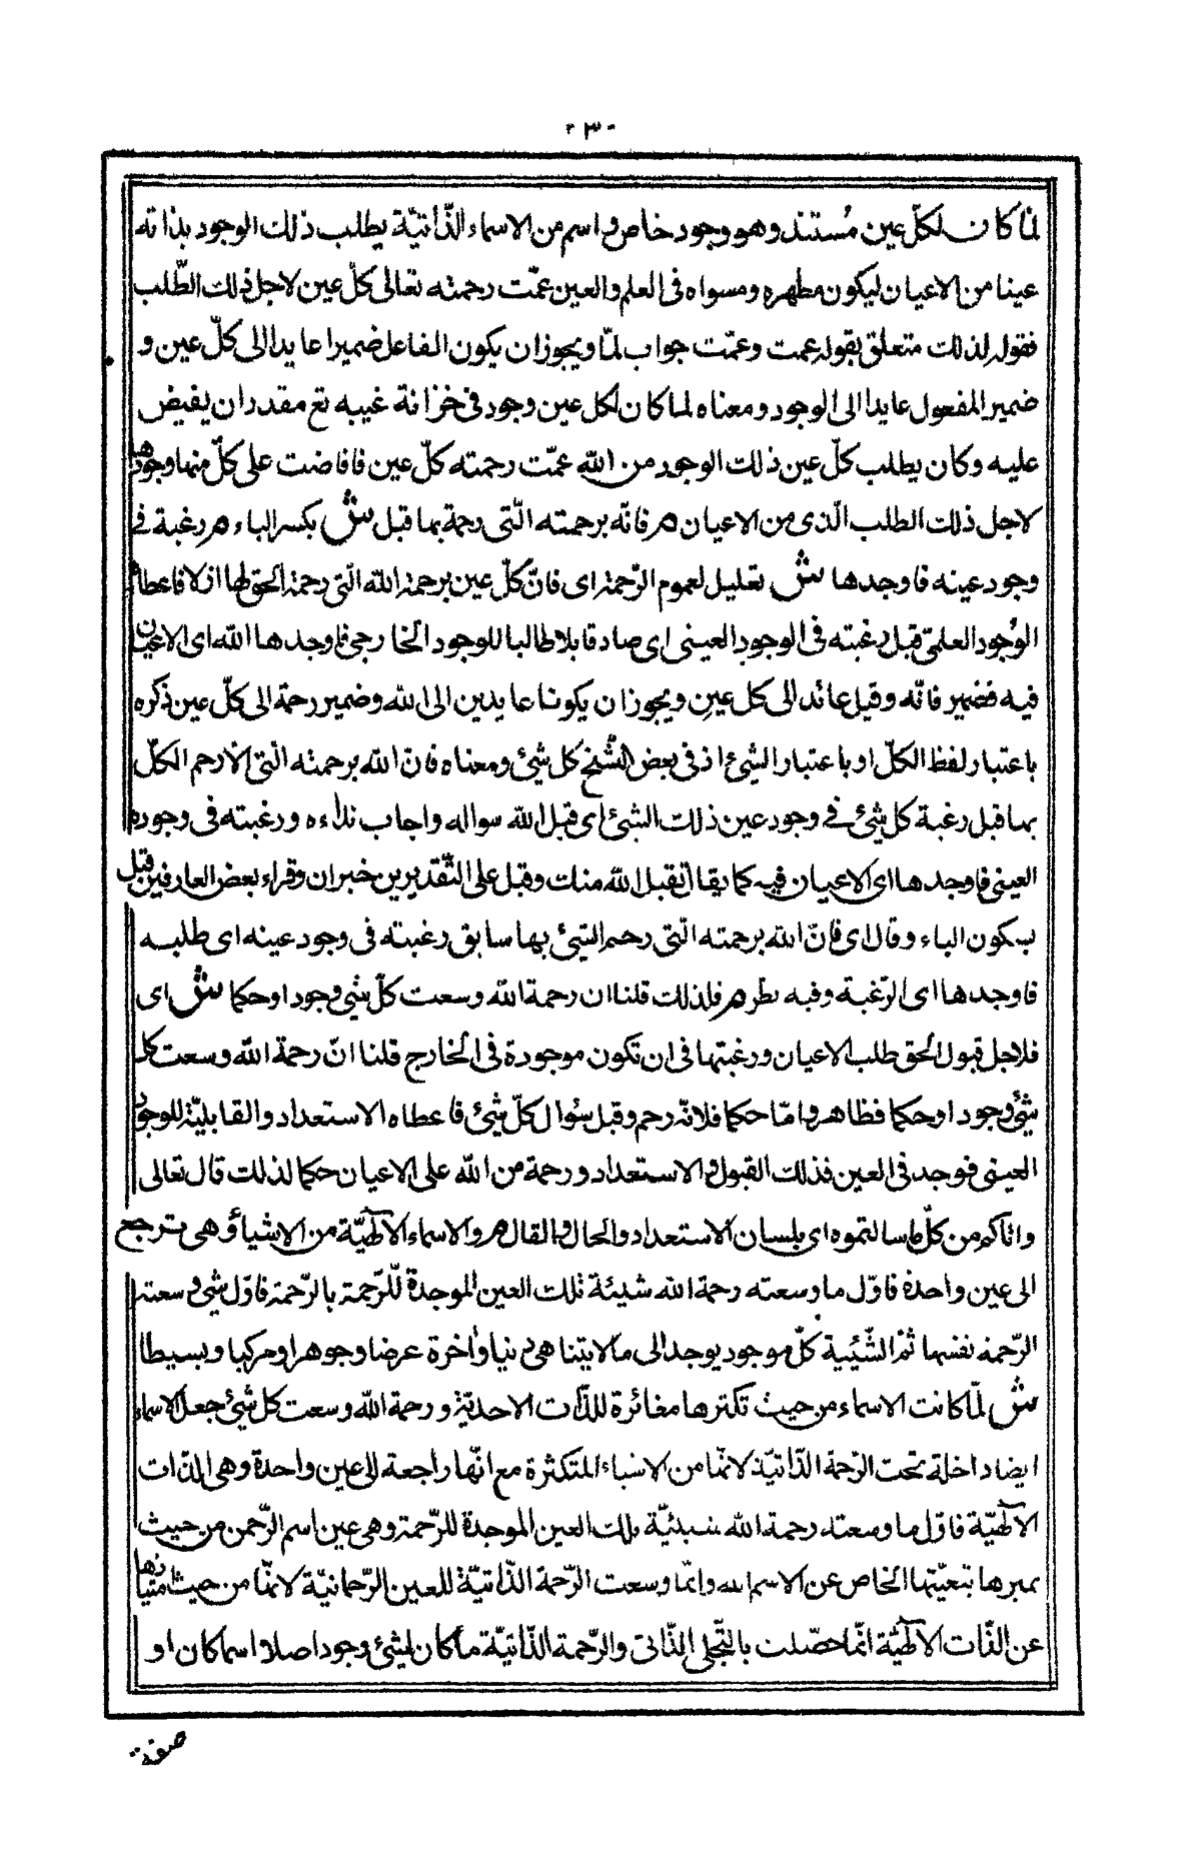 - ٣ -
لمّا كان لكلّ عين مُستند وهو وجود خاص و اسم من الاسماء الذّاتيّة يطلب ذلك الوجود بذاته
عينا من الاعيان ليكون مظهره ومسواه فى العلم والعين عمّت رحمته تعالى كلّ عين لاجل ذلك الطّلب
فقوله لذلك متعلق بقوله عمت وعمّت جواب لمّا ويجوز ان يكون الفاعل ضميرا عايدا الى كلّ عين و
ضمير المفعول عايدا الى الوجود ومعناه لما كان لكل عين وجود فى خزانة غيبه تع مقدر ان يفيض
عليه وكان يطلب كلّ عين ذلك الوجود من الله عمّت رحمته كلّ عين فافاضت على كلّ منها وجودها
لاجل ذلك الطلب الّذى من الاعيان م فانّه برحمته الّتى رحمة بما قبل ش بكسر الباء م رغبة فى
وجود عينه فاوجدها ش تعليل لعموم الرّحمة اى فانّ كلّ عين برحمة الله الّتى رحمة الحق لها ازلا فاعطاه
الوُجود العلمىّ قبل رغبته فى الوجود العينى اى صاد قابلا طالبا للوجود الخارجى فاوجدها الله اى الاعيان
فيه فضمير فانّه وقبل عائد الى كل عين ويجوز ان يكونا عايدين الى الله وضمير رحمة الى كلّ عين ذكره
باعتبار لفظ الكلّ او باعتبار الشئ اذ فى بعض النّسخ كل شئ ومعناه فانّ الله برحمته الّتى رحم الكلّ
بما قبل رغبة كل شئ فى وجود عين ذلك الشئ اى قبل الله سواله واجاب نداءه ورغبته فى وجوده
العينى فاوجدها اى الاعيان فيه كما يقال تقبل الله منك وقبل على التّقديرين خبر ان وقراء بعض العارفين قبل
بسكون الباء وقال اى فانّ الله برحمته الّتى رحم الشئ بها سابق رغبته فى وجود عينه اى طلبه
فاوجدها اى الرّغبة وفيه نظر م فلذلك قلنا ان رحمة الله وسعت كلّ شئ وجودا وحكما ش اى
فلاجل قبول الحق طلب الاعيان ورغبتها فى ان تكون موجودة فى الخارج قلنا انّ رحمة الله وسعت كل
شئ وجودا وحكما فظاهر وامّا حكما فلانّه رحم وقبل سُوال كلّ شئ فاعطاه الاستعداد والقابليّة للوجود
العينى فوجد فى العين فذلك القبول والاستعداد ورحمة من الله على الاعيان حكما لذلك قال تعالى
واتاكم من كلّ ما سالتموه اى بلسان الاستعداد والحال والقال م والاسماء الالٰهيّة من الاشياء وهى ترجع
الى عين واحدة فاوّل ما وسعته رحمة الله شيئة تلك العين الموجدة للّرّحمة بالرّحمة فاوّل شئ وسعته
الرّحمة نفسها ثمّ الشّيئية كلّ موجود يوجد الى ما لا يتناهى دنيا واخرة عرضا وجوهرا ومركبا وبسيطا
ش لمّا كانت الاسماء من حيث تكثرها مغائرة للذّات الاحديّة ورحمة الله وسعت كل شئ جعل الاسماء
ايضا داخلة تحت الرّحمة الذّاتيّة لانّها من الاشياء المتكثرة مع انّها راجعة الى عين واحدة وهى الذّات
الالٰهيّة فاوّل ما وسعته رحمة الله شيئيّة تلك العين الموجدة للرّحمة وهى عين اسم الرّحمن من حيث
تميزها بتعيّنها الخاص عن الاسم الله وانّما وسعت الرّحمة الذّاتيّة للعين الرّحمانيّة لانّها من حيث امتيازها
عن الذّات الالٰهيّة انّما حصّلت بالتّجلى الذّاتى والرّحمة الذّاتيّة ما كان لشئ وجود اصلا اسما كان او
صفة